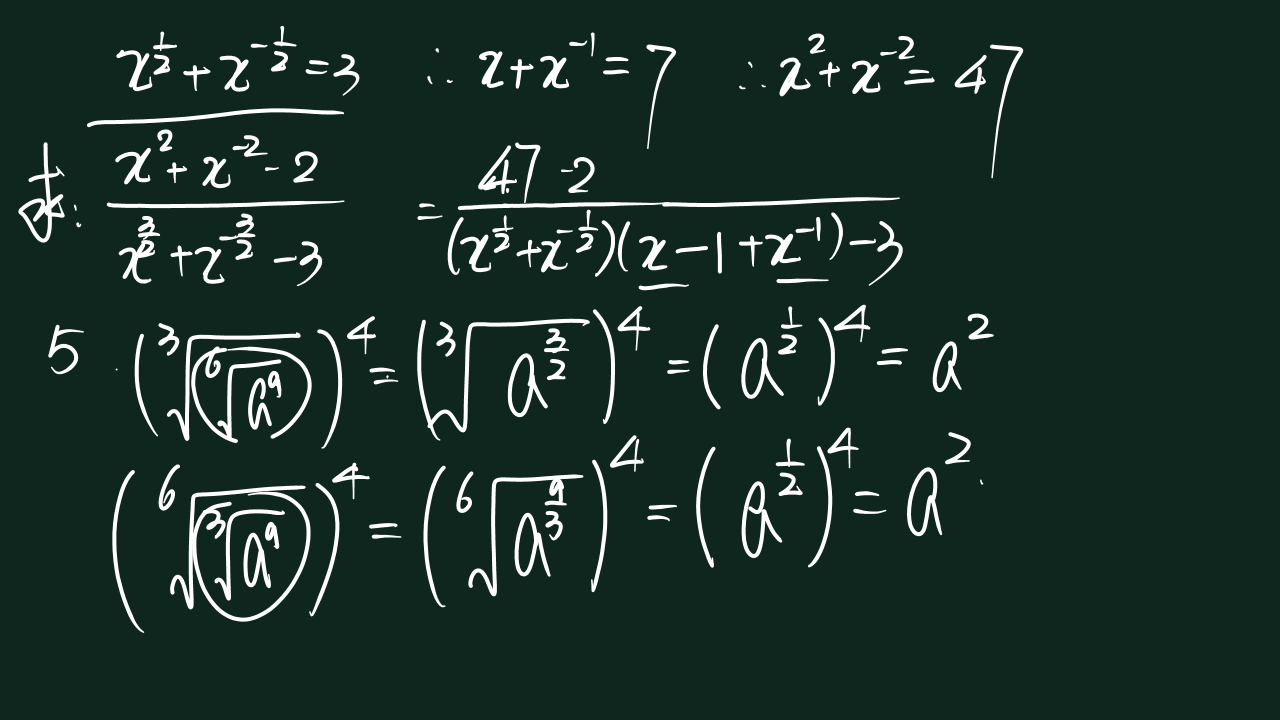 x^{1/2} + x^{-1/2} = 3 ∴ x + x^{-1} = 7 ∴ x^2 + x^{-2} = 47
求: (x^2 + x^{-2} - 2)/(x^{3/2} + x^{-3/2} - 3) = (47 - 2)/((x^{1/2} + x^{-1/2})(x - 1 + x^{-1}) - 3)
5. (∛(⁶√(a^9)))^4 = (∛(a^{3/2}))^4 = (a^{1/2})^4 = a^2
(⁶√(∛(a^9)))^4 = (⁶√(a^{9/3}))^4 = (a^{1/2})^4 = a^2.